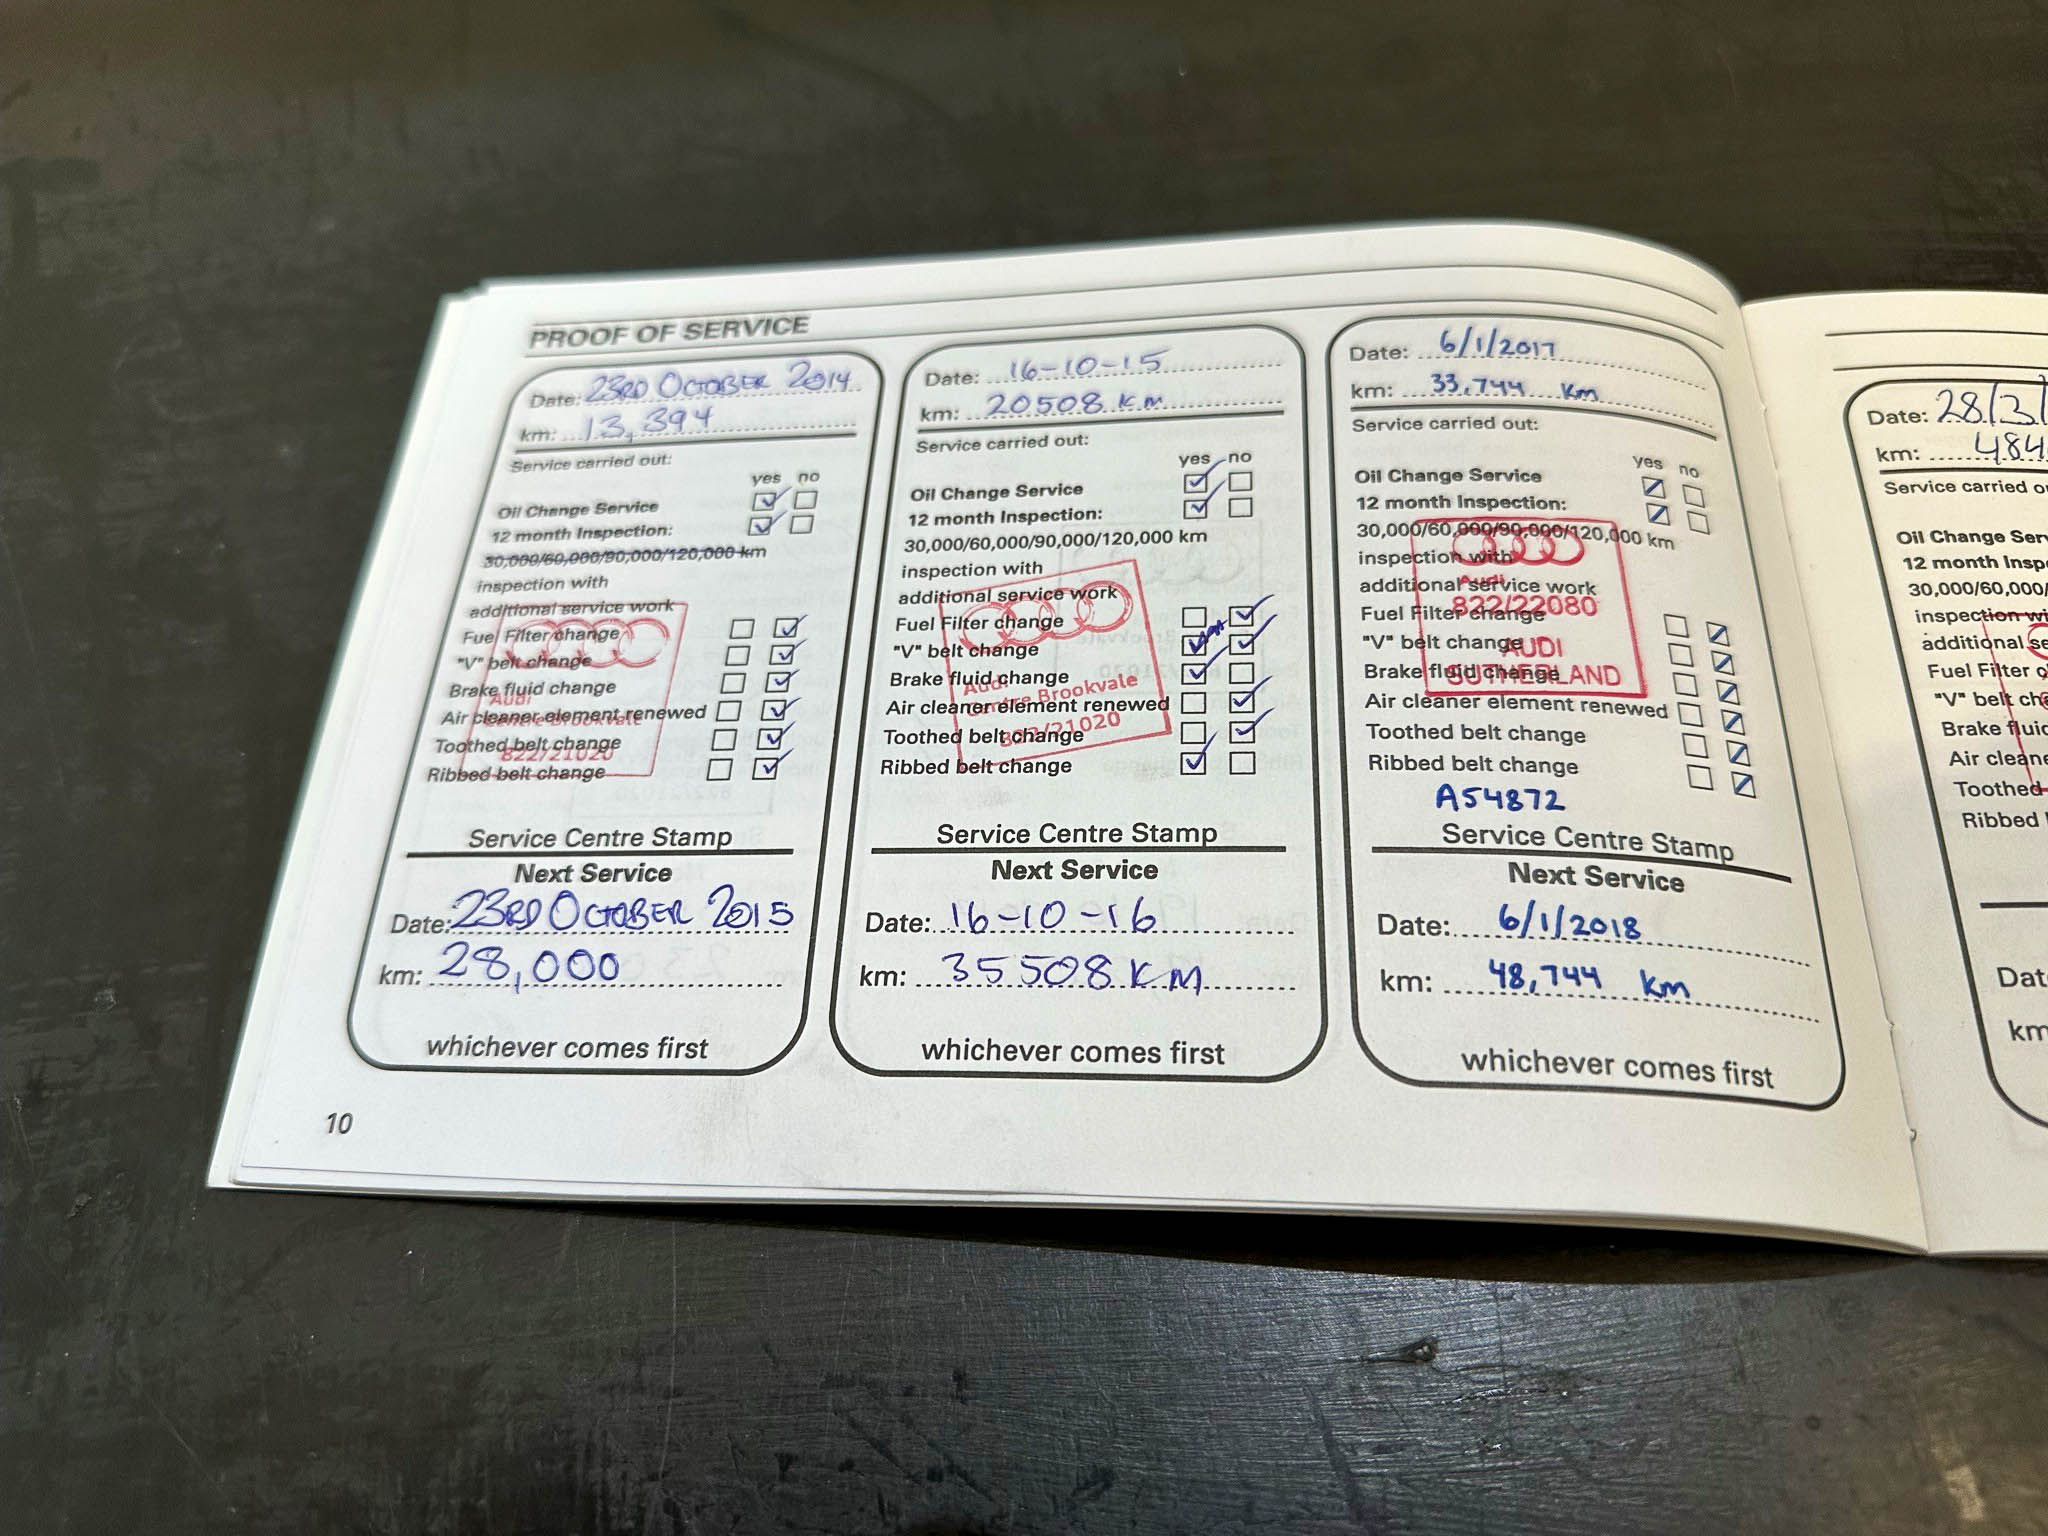 PROOF OF SERVICE
Date: 23RD OCTOBER 2014
km: 13,394
Service carried out:
yes no
Oil Change Service
12 month Inspection:
30,000/60,000/90,000/120,000 km
inspection with
additional service work
Fuel Filter change
"V" belt change
Brake fluid change
Air cleaner element renewed
Toothed belt change
Ribbed belt change
Audi
Centre Brookvale
822/21020
Service Centre Stamp
Next Service
Date: 23RD OCTOBER 2015
km: 28,000
whichever comes first
Date: 16-10-15
km: 20508 KM
Service carried out:
yes no
Oil Change Service
12 month Inspection:
30,000/60,000/90,000/120,000 km
inspection with
additional service work
Fuel Filter change
"V" belt change
Brake fluid change
Air cleaner element renewed
Toothed belt change
Ribbed belt change
Audi
Centre Brookvale
822/21020
Service Centre Stamp
Next Service
Date: 16-10-16
km: 35508 KM
whichever comes first
Date: 6/1/2017
km: 33,744 Km
Service carried out:
yes no
Oil Change Service
12 month Inspection:
30,000/60,000/90,000/120,000 km
inspection with
additional service work
Fuel Filter change
"V" belt change
Brake fluid change
Air cleaner element renewed
Toothed belt change
Ribbed belt change
Audi
822/22080
AUDI
SUTHERLAND
A54872
Service Centre Stamp
Next Service
Date: 6/1/2018
km: 48,744 Km
whichever comes first
10
Date: 28/3/
km: 484
Service carried o
Oil Change Ser
12 month Insp
30,000/60,000/
inspection wi
additional se
Fuel Filter c
"V" belt ch
Brake fluid
Air cleane
Toothed
Ribbed
Dat
km